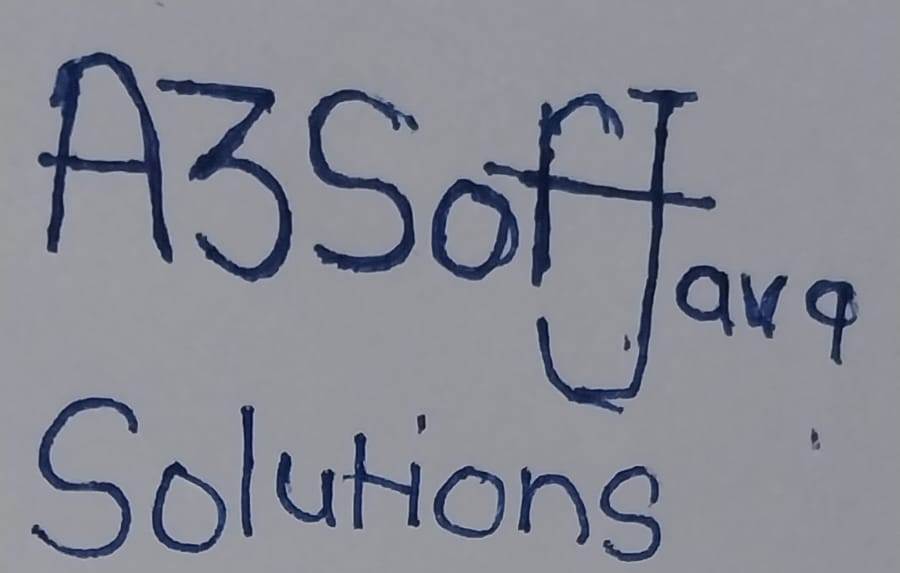 A3SofJava
Solutions